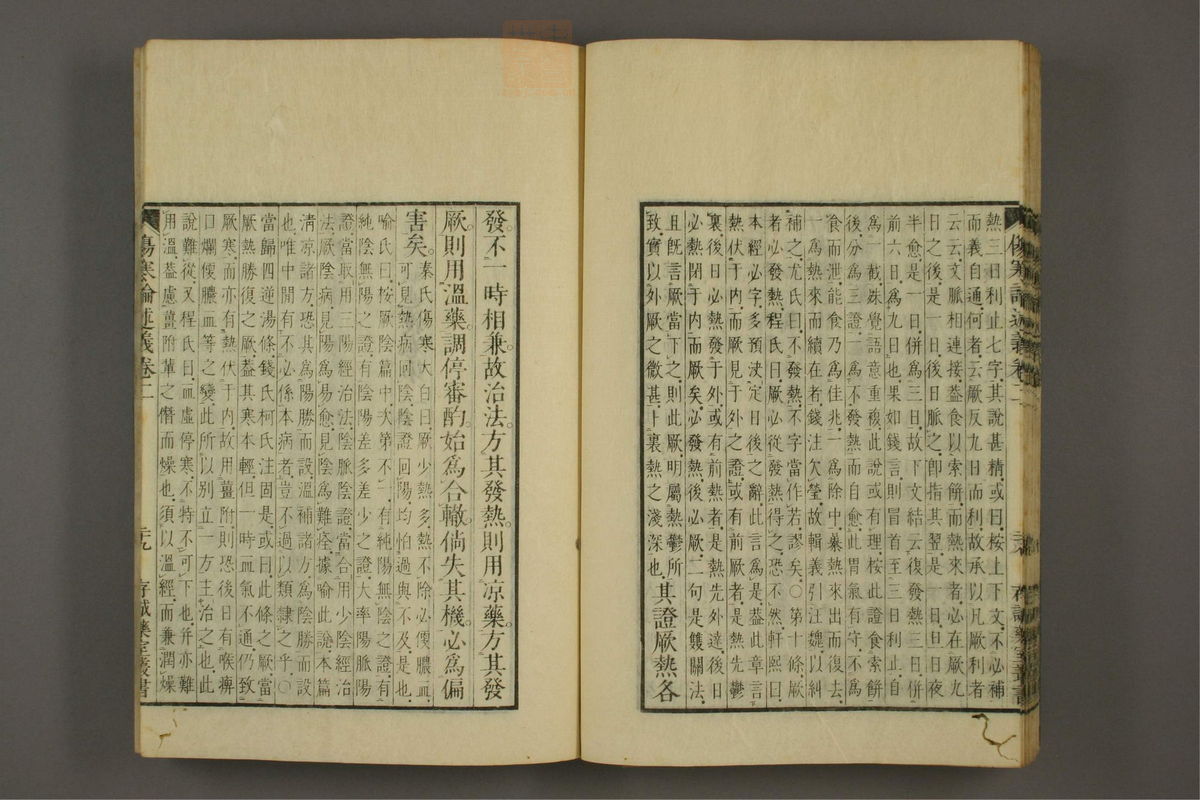 熱三日利止七字其說甚精或曰桉上下文不必補
而義自通何者云厥反九日而利故承以凡厥利者
云云文脈相連接葢食以索餅而熱來者必在厥九
日之後是一日後日脈之卽指其翌是一日旦日夜
半愈是一日併爲三日故下文結云復發熱三日併
前六日爲九日也果如錢言則冒首至三日利止自
爲一截殊覺語意重複此說或有理桉此證食索餅
後分爲三證一爲不發熱而自愈此胃氣有守不爲
食而泄能食乃爲佳兆一爲除中暴熱來出而復去
一爲熱來而續在者錢注欠瑩故輯義引注魏以糾
補之尤氏曰不發熱不字當作若謬矣〇第十條厥
者必發熱程氏曰厥必從發熱得之恐不然軒熙曰
本經必字多預決定日後之辭此言爲是葢此章言
熱伏于内而厥見于外之證或有前厥者是熱先鬱
裏後日必熱發于外或有前熱者是熱先外達後日
必熱閉于内而厥矣必發熱後必厥二句是雙關法
且旣言厥當下之則此厥明屬熱鬱所
致實以外厥之微甚卜裏熱之淺深也其證厥熱各
發不一時相兼故治法方其發熱則用凉藥方其發
厥則用溫藥調停審酌始爲合轍倘失其機必爲偏
害矣秦氏傷寒大白曰厥少熱多熱不除必便膿血
可見熱病回陰陰證回陽均怕過與不及是也
喻氏曰桉厥陰篇中次第不一有純陽無陰之證有
純陰無陽之證有陰陽差多差少之證大率陽脈陽
證當取用三陽經治法陰脈陰證當合用少陰經治
法厥陰病見陽爲易愈見陰爲難痊據喻此說本篇
淸凉諸方恐其爲陽勝而設溫補諸方爲陰勝而設
也唯中閒有不必係本病者豈不過以類隸之乎〇
當歸四逆湯條錢氏柯氏注固是或曰此條之厥當
厥熱勝復之厥葢其寒本輕但一時血氣不通仍致
厥寒而亦有熱伏于内故用薑附則恐後日有喉痹
口爛便膿血等之變此所以别立一方主治之也此
說難從又程氏曰血虛停寒不特不可下也幷亦難
用溫葢慮薑附軰之僭而燥也須以溫經而兼潤燥
傷寒論述義卷二
二十九
存誠藥室叢書